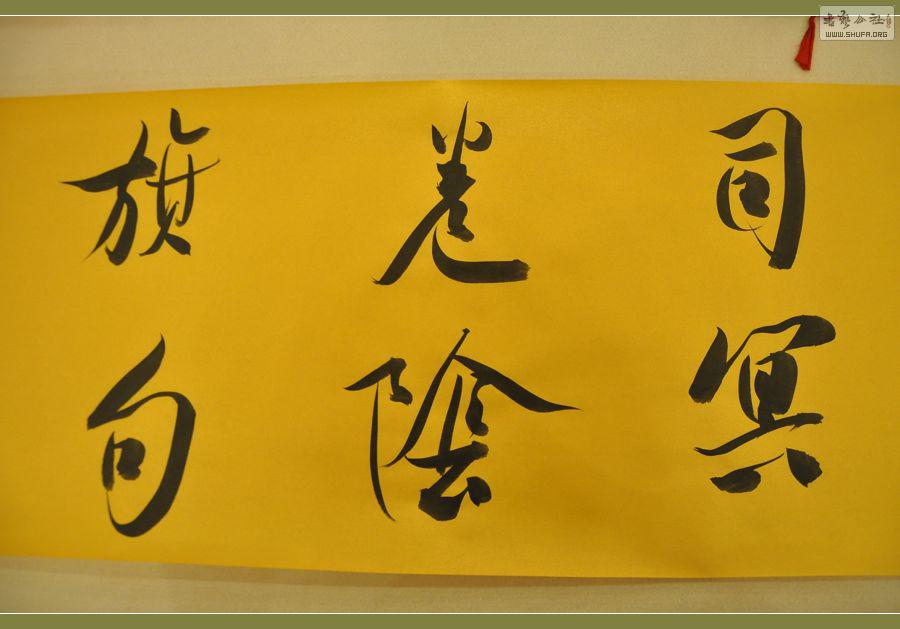 司冥
卷陰
旗句
書藝公社
WWW.SHUFA.ORG